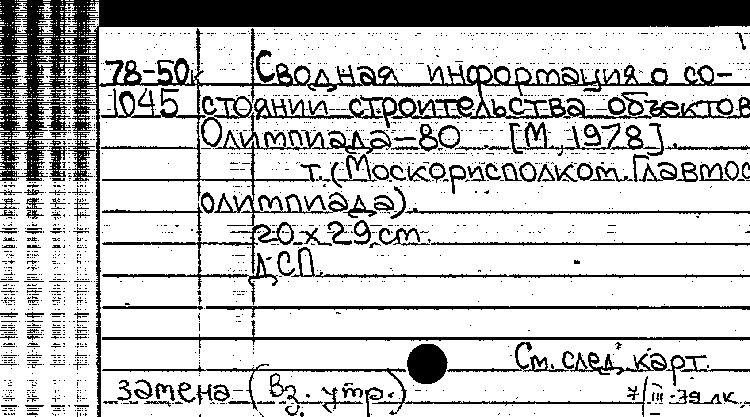 78-50к Сводная информация о со-
1045 стоянии строительства объектов
Олимпиада-80 [М, 1978].
т. (Москорисполком. Главмос
олимпиада).
20 x 29 см.
ДСП.
См. след. карт.
замена (Вз. утр.)
7/III-79 лк.